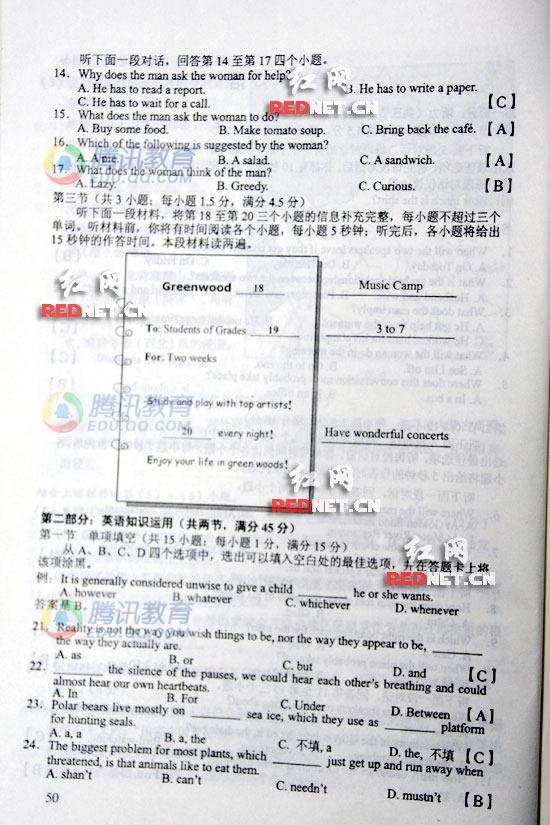 听下面一段对话，回答第 14 至第 17 四个小题。
14. Why does the man ask the woman for help?
A. He has to read a report. B. He has to write a paper.
C. He has to wait for a call. 【C】
15. What does the man ask the woman to do?
A. Buy some food. B. Make tomato soup. C. Bring back the café. 【A】
16. Which of the following is suggested by the woman?
A. A pie. B. A salad. C. A sandwich. 【A】
17. What does the woman think of the man?
A. Lazy. B. Greedy. C. Curious. 【B】
第三节（共 3 小题；每小题 1.5 分，满分 4.5 分）
听下面一段材料，将第 18 至第 20 三个小题的信息补充完整，每小题不超过三个
单词。听材料前，你将有时间阅读各个小题，每小题 5 秒钟；听完后，各小题将给出
15 秒钟的作答时间。本段材料读两遍。
Greenwood 18 Music Camp
To: Students of Grades 19 3 to 7
For: Two weeks
Study and play with top artists!
20 every night! Have wonderful concerts
Enjoy your life in green woods!
第二部分：英语知识运用（共两节，满分 45 分）
第一节 单项填空（共 15 小题；每小题 1 分，满分 15 分）
从 A、B、C、D 四个选项中，选出可以填入空白处的最佳选项，并在答题卡上将
该项涂黑。
例：It is generally considered unwise to give a child ______ he or she wants.
A. however B. whatever C. whichever D. whenever
答案是 B。
21. Reality is not the way you wish things to be, nor the way they appear to be, ______
the way they actually are.
A. as B. or C. but D. and 【C】
22. ______ the silence of the pauses, we could hear each other's breathing and could
almost hear our own heartbeats.
A. In B. For C. Under D. Between 【A】
23. Polar bears live mostly on ______ sea ice, which they use as ______ platform
for hunting seals.
A. a, a B. a, the C. 不填, a D. the, 不填 【C】
24. The biggest problem for most plants, which ______ just get up and run away when
threatened, is that animals like to eat them.
A. shan't B. can't C. needn't D. mustn't 【B】
50
红网
REDNET.CN
腾讯教育
EDU.QQ.COM
红网
REDNET.CN
腾讯教育
EDU.QQ.COM
红网
REDNET.CN
红网
REDNET.CN
腾讯教育
EDU.QQ.COM